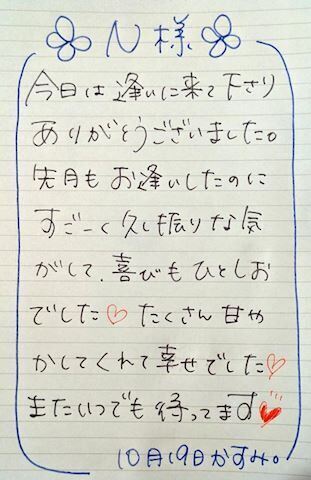 N様
今日は逢いに来て下さり
ありがとうございました。
先月もお逢いしたのに
すごーく久し振りな気
がして、喜びもひとしお
でした♡たくさん甘や
かしてくれて幸せでした♡
またいつでも待ってます♥
10月19日かすみ。